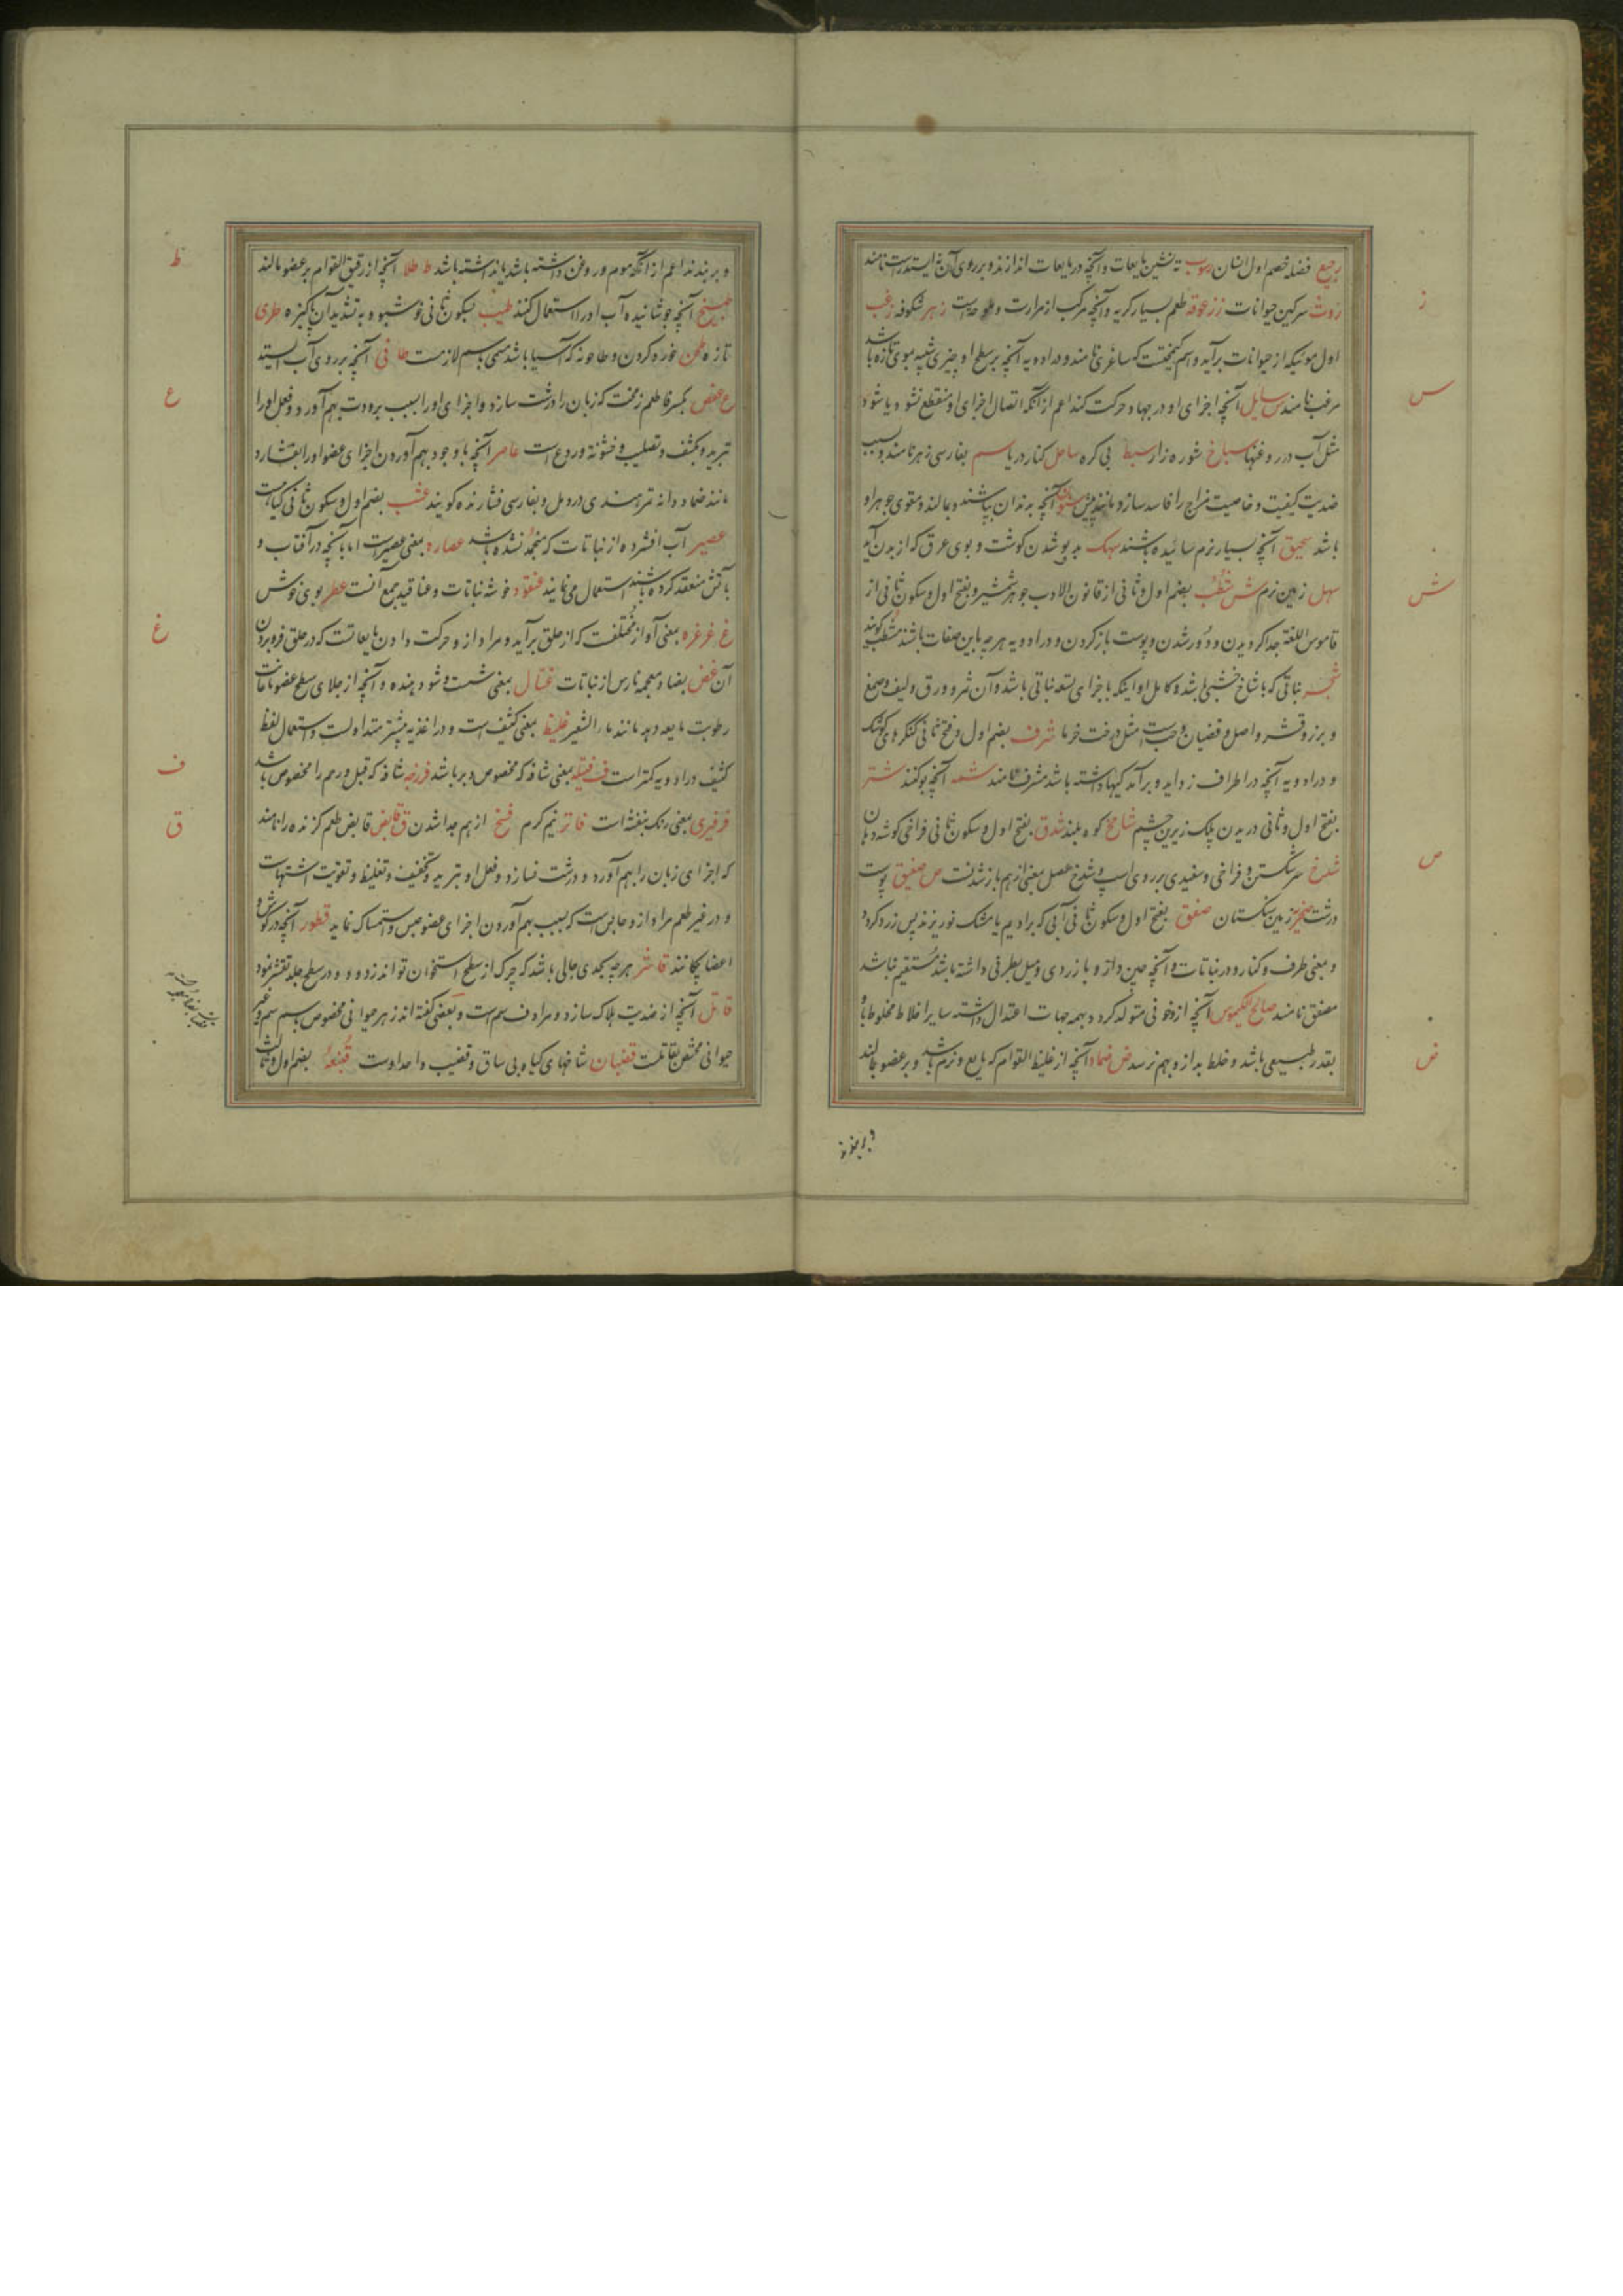 رجیع فضله خصم اول انسان رسوب ته نشین مایعات و آنچه در مایعات اندازند و بر روی آن نه ایستد راست نامند
روث سرکین حیوانات ز زعوقه طعم بسیار کریه و آنچه مرکب از مرارت و ملوحت است زهر شکوفه زغب
اول موئیکه از حیوانات برآید و اسم کیمخت که ساغری نامند و در ادویه آنچه بر سطح او چیزی شبیه بموی تازه باشد
مزغب نامند س سایل آنچه اجزای او در جهات حرکت کند اعم از آنکه اتصال اجزای او منقطع نشود یا شود
مثل آب و روغنها سباخ شوره زار سبط بی کره ساحل کنار دریا سم بفارسی زهر نامند و بسبب
ضدیت کیفیت و خاصیت مزاج را فاسد سازد مانند بیش سنون آنچه بدندان بپاشند و بمالند و مقوی جوهر او
باشد سحیق آنچه بسیار نرم سائیده باشند سهک بدبو شدن کوشت و بوی عرق که از بدن آید
سهل زمین نرم ش شطب بضم اول و ثانی از قانون الادب جوهر شمشیر و بفتح اول و سکون ثانی از
قاموس اللغة جدا کردیدن و دور شدن و پوست باز کردن و در ادویه هرچه باین صفات باشند مشطب کویند
شجر نباتی که با شاخ خشبی باشد و کامل او اینکه با جزای تسعه نباتی باشد و آن ثمر و ورق و لیف و صمغ
و بزر و قشر و اصل و قضبان و حب است مثل درخت خرما شرف بضم اول و فتح ثانی کنکرهای کوشک
و در ادویه آنچه در اطراف زواید و برآمدکیها داشته باشد مشرف نامند شمه آنچه بو کنند شتر
بفتح اول و ثانی دریدن پلک زیرین چشم شامخ کوه بلند شدق بفتح اول و سکون ثانی فراخی کوشه دهان
شدخ سر شکستن و فراخی و سفیدی بر روی اسپ و شدخ عضل بمعنی از هم باز شدنست ص صفیق پوست
درشت صخر زمین سنکستان صفق بفتح اول و سکون ثانی آبی که بر ادیم یا مشک نو ریزند پس زرد کردد
و بمعنی طرف و کناره و در نباتات و آنچه چین دار و یا زردی و میل بطرفی داشته باشد مستقیم نباشد
مصفق نامند صالح الکیموس آنچه از و خونی متولد کردد بهمه جهات اعتدال داشته سایر اخلاط مخلوط با او
بقدر طبیعی باشد و خلط بد از و بهم نرسد ض ضماد آنچه از غلیظ القوام که مایع و نرم باشد و بر عضو بمالند
ز
س
ش
ص
ض
و بر بندند اعم از آنکه موم و روغن داشته باشد یا نداشته باشد ط طلا آنچه از رقیق القوام بر عضو مالند
طبیخ آنچه جوشانیده آب او را استعمال کنند طیب بسکون ثانی خوشبو و به تشدید آن پاکیزه طری
تازه طحن خورد کردن و طاحونه که آسیا باشد مسمی باسم لازمست طافی آنچه بر روی آب ایستد
ع عفص بکسر فا طعم زمخت که زبان را درشت سازد و اجزای او را بسبب برودت بهم آورد و فعل او را
تبرید و تکثیف و تصلیب و خشونة و ردع است عاصر آنچه با وجود بهم آوردن اجزای عضو او را بفشارد
مانند ضماد دانه تمر هندی در دمل و بفارسی فشارنده کویند عشب بضم اول و سکون ثانی کیاهست
عصیر آب افشرده از نباتات که منجمد نشده باشد عصاره بمعنی عصیر است اما بآنچه در آفتاب و
بآتش منعقد کرده باشند استعمال می نمایند عنقود خوشه نباتات و عناقید جمع آنست عطر بوی خوش
غ غرغره بمعنی آواز مختلفست که از حلق برآید و مراد از و حرکت دادن مایعاتست که در حلق فرو بردن
آن غض بضاد معجمه نارس از نباتات غسال بمعنی شست و شو دهنده و آنچه از جلای سطح عضو با عانت
رطوبت مایعه دهد مانند ماء الشعیر غلیظ بمعنی کثیف است و در اغذیه بیشتر متداولست و استعمال لفظ
کثیف در ادویه کمتر است ف فتیله بمعنی شافه که مخصوص دبر باشد فرزجه شافه که قبل و رحم را مخصوص باشد
فرفیری بمعنی رنک بنفشه است فاتر نیم کرم فسخ از هم جدا شدن ق قابض قابض طعم کزنده را نامند
که اجزای زبان را بهم آورد و درشت نسازد و فعل او تبرید و تجفیف و تغلیظ و تقویت اشتهاست
و در غیر طعم مراد از و حابس است که بسبب بهم آوردن اجزای عضو حبس و استمساک نماید قطور آنچه در کوش و
اعضا چکانند قاشر هرچه بحدی جالی باشد که چرک از سطح استخوان تواند زدود و در سطح جلد تقشر نمود
قاتل آنچه از ضدیت هلاک سازد و مرادف سم است و بعضی کفته اند زهر حیوانی مخصوص باسم سم و غیر
حیوانی مختص بقاتلست قضبان شاخهای کیاه بی ساق و قضیب واحد اوست قنبعه بضم اول و ثالث
ط
ع
غ
ف
ق